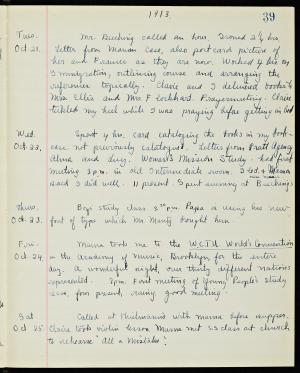 1913
39
Tues. Mr. Buehring called an hour. Ironed 2 1/4 hrs.
Oct 21. Letter from Marian Case, also post card picture of
her and Frances as they are now. Worked 4 hrs on
Immigration, outlining course and arranging the
references topically. Claire and I delivered books to
Miss Ellis and Mrs. F. Lockhart. Prayermeeting. Claire
tickled my heel while I was praying before getting in bed
Wed. Spent 4 hrs. card cataloging the books in my book-
Oct 22. case not previously catalogued. Letter from Pratt Agency
Alma and Lucy. Women's Mission Study - had first
meeting 3 p.m. in old Intermediate room. I led & Mama
said I did well. 11 present. Spent evening at Buehrings
Thurs. Boys study class 3:30 p.m. Papa is using his new
Oct 23. font of type which Mr. Mantz bought him
Fri. Mama took me to the W.C.T.U. World's Convention
Oct 24. in the Academy of Music, Brooklyn for the entire
day. A wonderful night, over thirty different nations
represented. 8 p.m. First meeting of Young People's Study
class, four present, rainy, good meeting.
Sat Called at Thielmann's with mama before supper.
Oct 25. Claire took violin lesson. Mama met SS class at church
to rehearse "All a Mistake"!